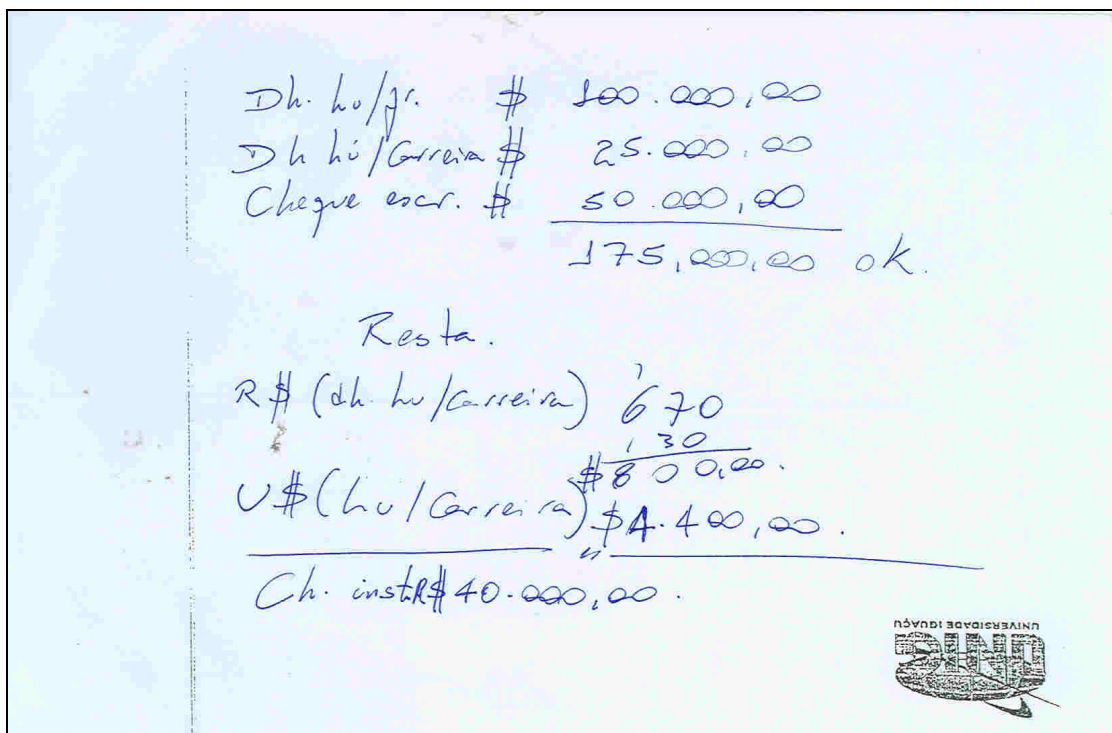 Dh. hu/jr. $ 100.000,00
Dh hu/Carreira $ 25.000,00
Cheque escr. $ 50.000,00
175,000,00 ok.
Resta.
R$ (dh. hu/Carreira) 670
130
$ 800,00.
U$ (hu/Carreira) $ 4.400,00.
Ch. inst. R$ 40.000,00.
UNIVERSIDADE IGUAÇU
UNIG